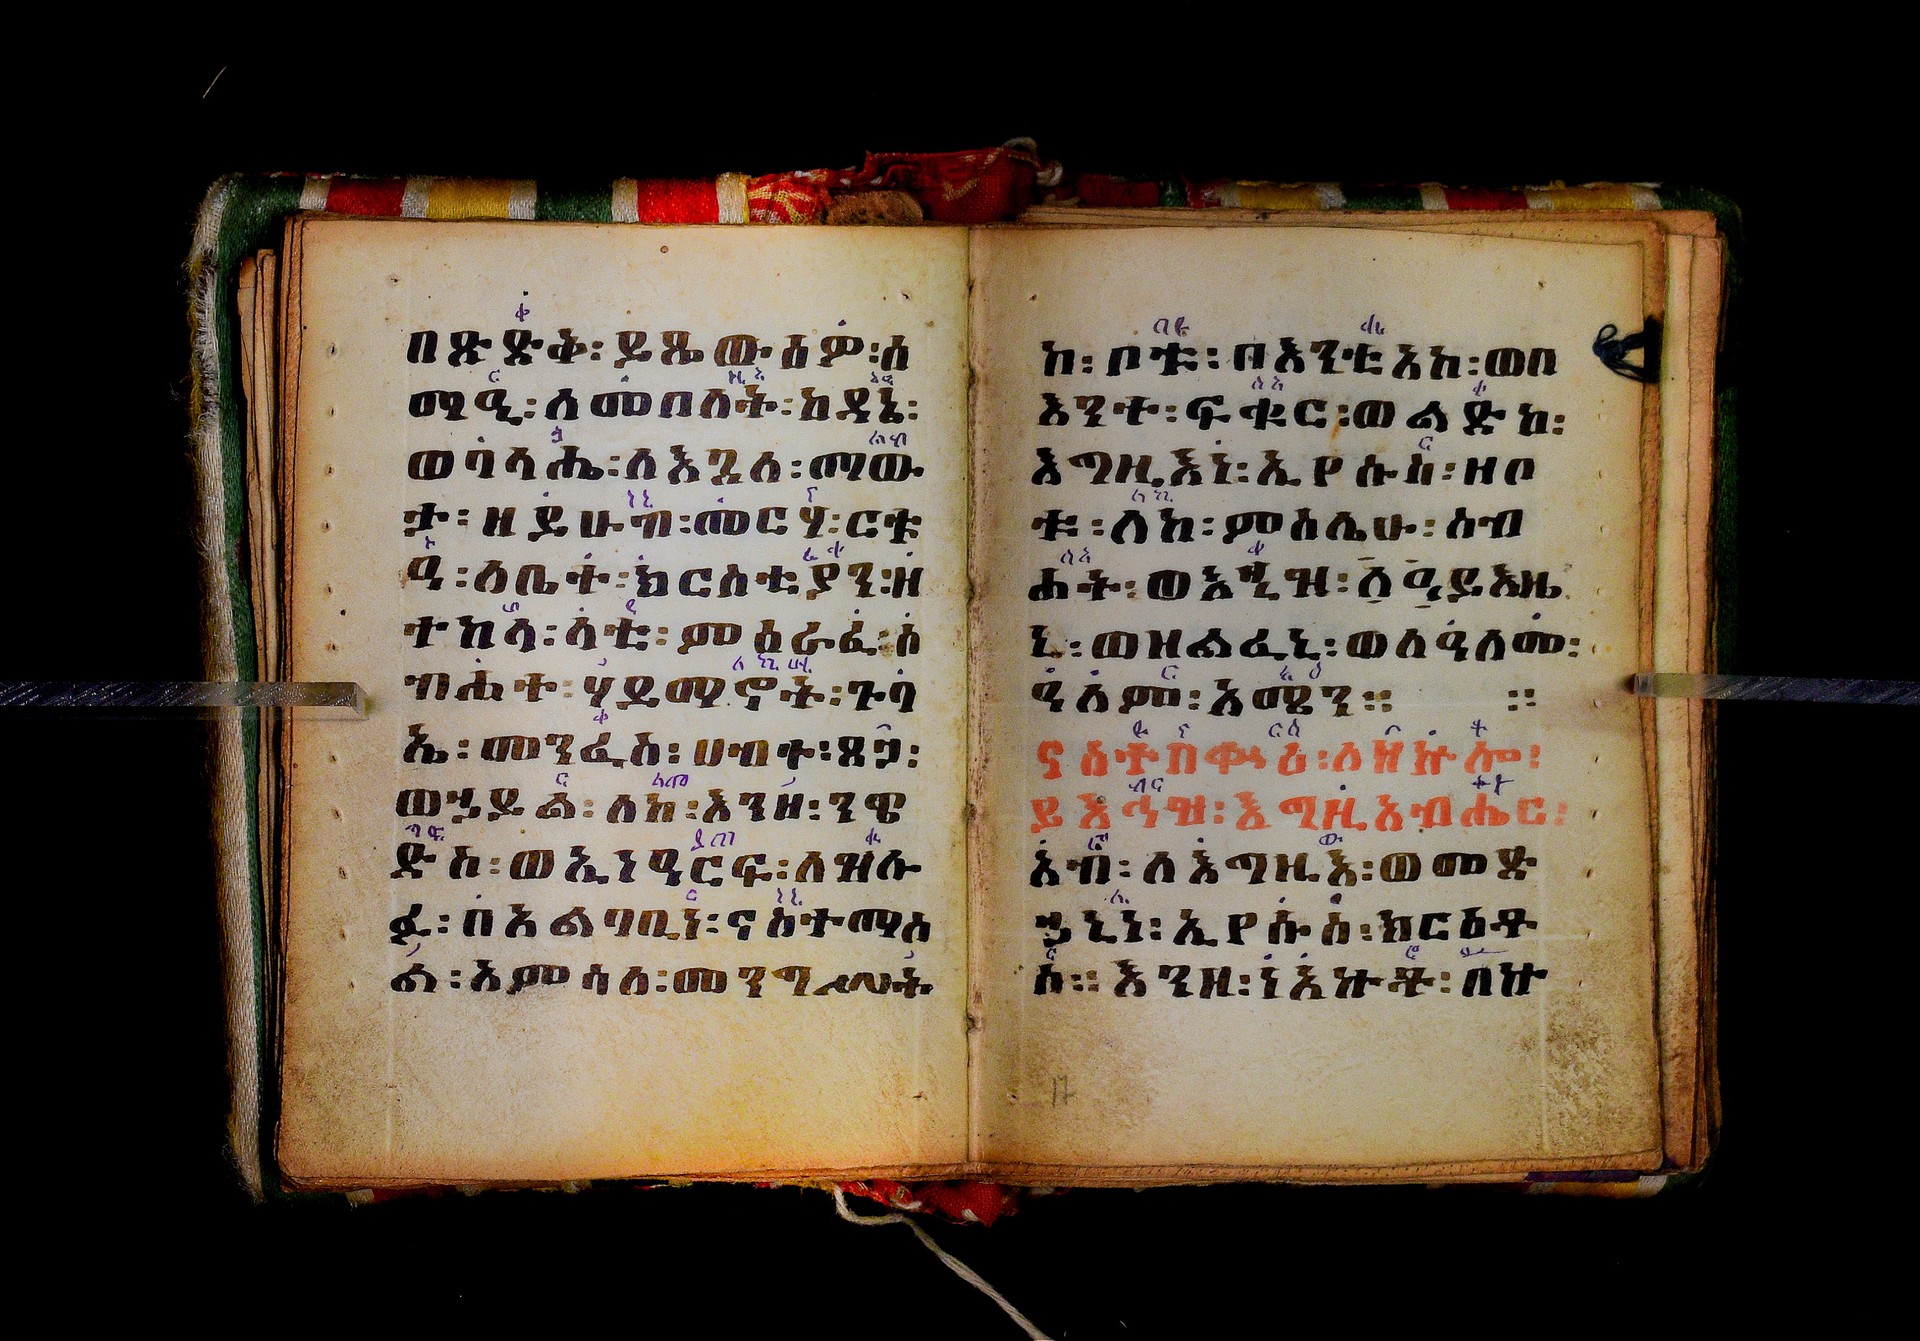 በጽድቅ፡ ይጼውዕዎ፡ ለ
ማዒ፡ ለመበለት፡ ከዳኔ፡
ወባላሔ፡ ለእጓለ፡ ማው
ታ፡ ዘይሁብ፡ መርሃ፡ ርቱ
ዓ፡ ለቤተ፡ ክርስቲያን፡ ዘ
ተከላ፡ ላቲ፡ ምዕራፈ፡ ስ
ብሐት፡ ሃይማኖት፡ ጉባ
ኤ፡ መንፈስ፡ ሀብተ፡ ጸጋ፡
ወኃይል፡ ለከ፡ እንዘ፡ ንሞ
እስ፡ ወኢነዓርፍ፡ ለዝሉ
ፉ፡ በአልባቢነ፡ ናስተማስ
ል፡ አምሳለ፡ መንግሥት
ከ፡ ቦቱ፡ በእንቲአከ፡ ወበ
እንተ፡ ፍቁር፡ ወልድከ፡
እግዚእነ፡ ኢየሱስ፡ ዘቦ
ቱ፡ ለከ፡ ምስሌሁ፡ ስብ
ሐት፡ ወእኂዝ፡ ለዓ ይእዜ
ኒ፡ ወዘልፈኒ፡ ወለዓለመ፡
ዓለም፡ አሜን።
ናስተበቍዕ፡ ለዘኵሎ፡
ይእኅዝ፡ እግዚአብሔር፡
አብ፡ ለእግዚእ፡ ወመድ
ኃኒነ፡ ኢየሱስ፡ ክርስቶ
ስ። እንዘ፡ ነአኵቶ፡ በኵ
17